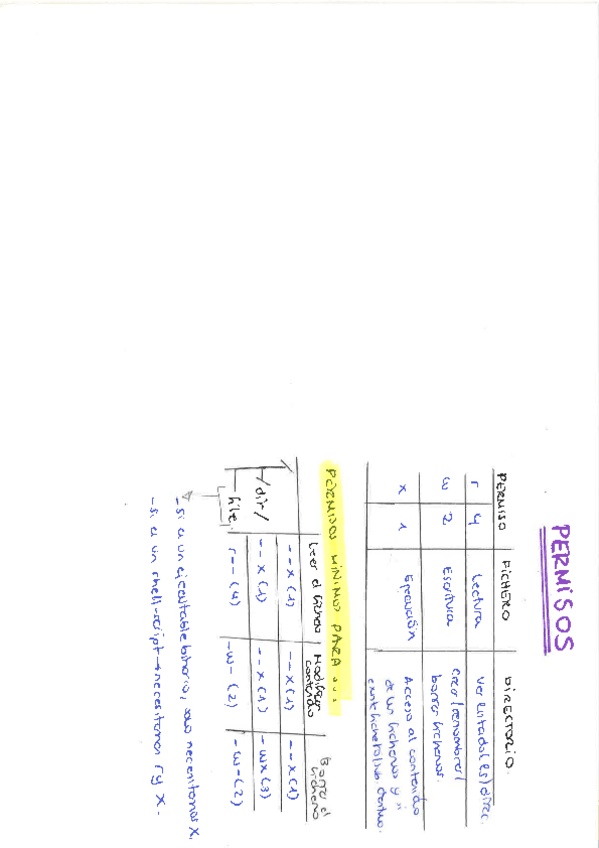 PERMISOS
PERMISO FICHERO DIRECTORIO.
r 4 Lectura Ver listado (ls) direc.
w 2 Escritura Crear/renombrar/
borrar ficheros.
x 1 Ejecución Acceso al contenido
de un fichero y si
existe fichero/no dentro.
PERMISOS MÍNIMOS PARA ...
Leer el fichero Modificar contenido Borrar el fichero
/ --x (1) --x (1) --x (1)
/dir/ --x (1) --x (1) -wx (3)
file. r-- (4) -w- (2) -w- (2)
- Si es un ejecutable binario, solo necesitamos x.
- Si es un shell-script → necesitamos r y x.